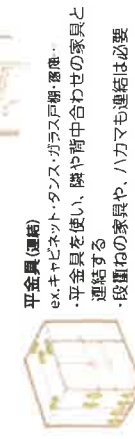 平金具(連結)
ex.キャビネット・タンス・ガラス戸棚・
・平金具を使い、隣や背中合わせの家具と
連結する
・段重ねの家具や、ハカマも連結は必要